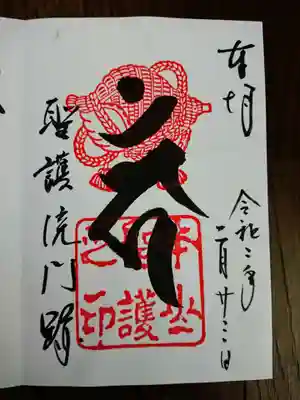 奉拝
令和二年
二月廿三日
本山
聖護
之印
聖護院門跡